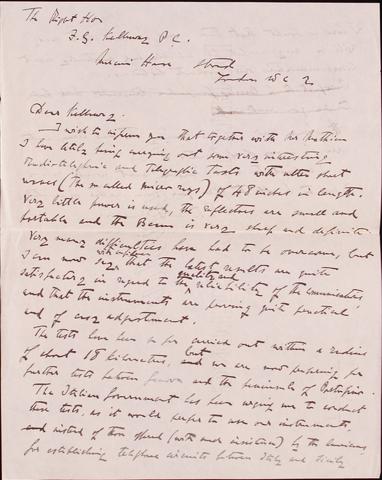 The Right Hon
F. G. Kellaway P.C.
Marconi House Strand
London W C 2
Dear Kellaway.
I wish to inform you that together with Mr Mathieu
I have lately been carrying out some very interesting
Radiotelephonic and Telegraphic Tests with ultra short
waves (the so called micro rays) of 48 inches in length.
Very little power is used, the reflectors are small and
portable and the Beam is very sharp and definite
Very many difficulties have had to be overcome, but
I am now that the latest results are quite
satisfactory in regard to the quality and reliability of the communications
and that the instruments are proving quite practical
and of easy adjustment.
The tests have been so far carried out within a radius
of about 18 kilometres, but we are now preparing for
further tests between Genova and the peninsula of Portofino.
The Italian Government has been urging me to conduct
these tests, as it would prefer to use our instruments,
instead of those offered (with much insistence) by the Americans
for establishing telephone circuits between Italy and Sicily